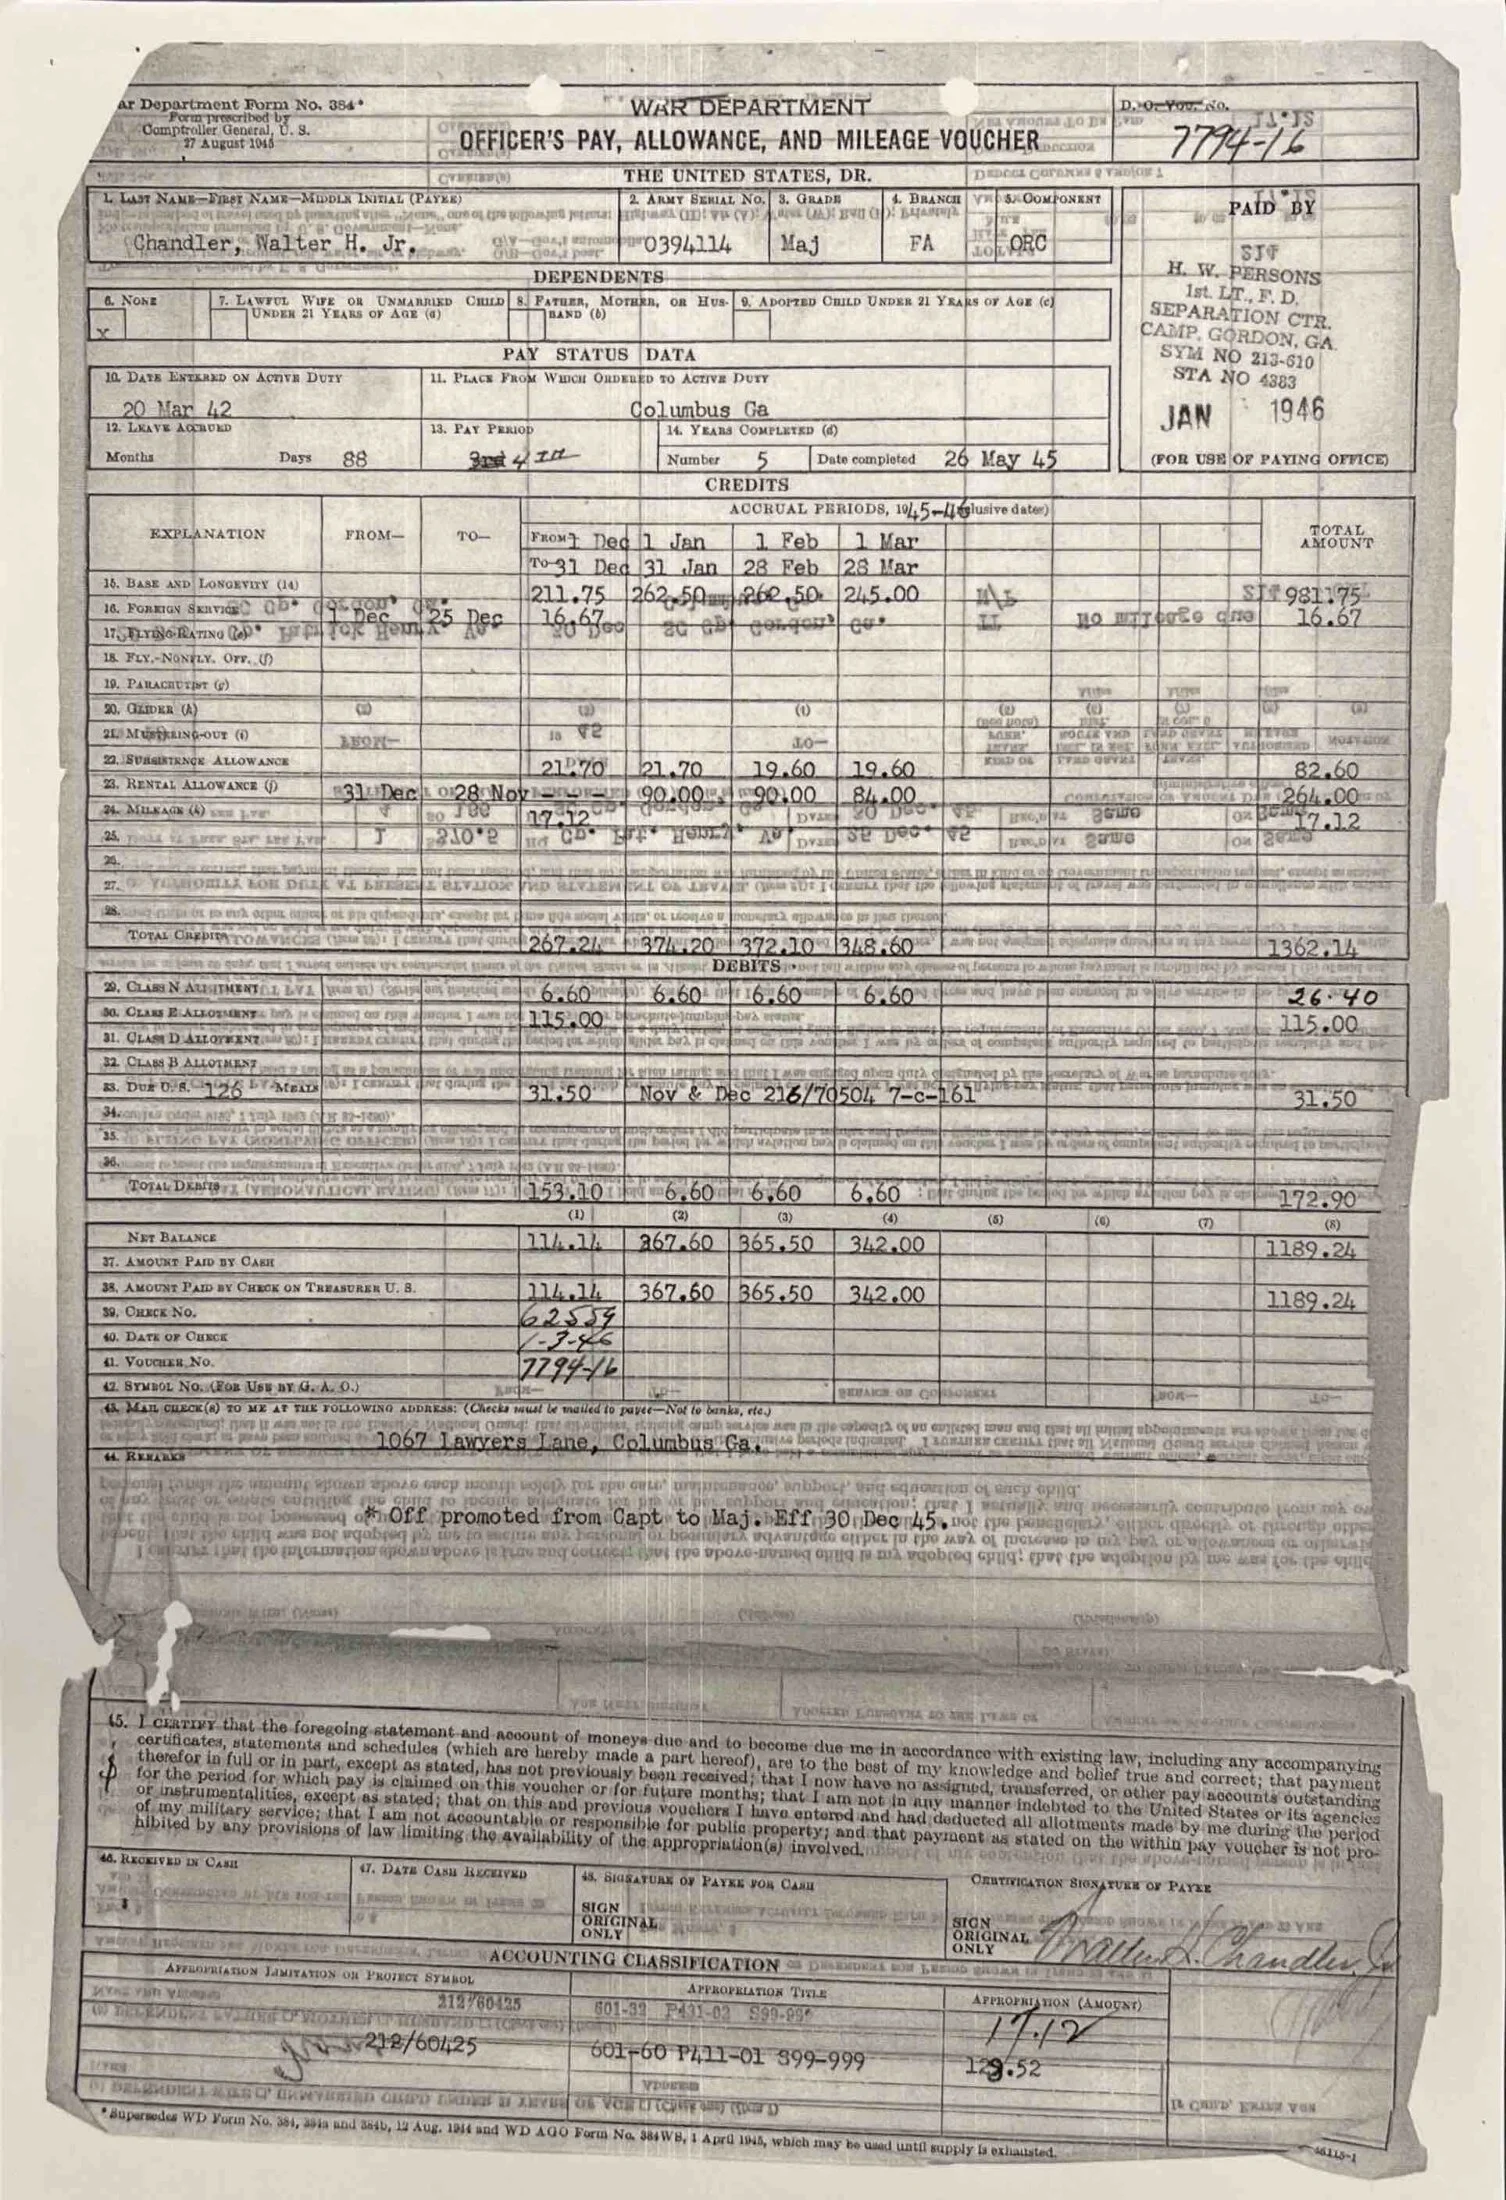 ar Department Form No. 384*
Form prescribed by
Comptroller General, U. S.
27 August 1945
WAR DEPARTMENT
OFFICER'S PAY, ALLOWANCE, AND MILEAGE VOUCHER
D. O. Vou. No.
7794-16
THE UNITED STATES, DR.
1. Last Name—First Name—Middle Initial (Payee)
2. Army Serial No.
3. Grade
4. Branch
5. Component
Chandler, Walter H. Jr.
0394114
Maj
FA
ORC
PAID BY
H. W. PERSONS
1st. LT., F. D.
SEPARATION CTR.
CAMP. GORDON, GA.
SYM NO 213-610
STA NO 4383
JAN 1946
(FOR USE OF PAYING OFFICE)
DEPENDENTS
6. None
x
7. Lawful Wife or Unmarried Child Under 21 Years of Age (a)
8. Father, Mother, or Husband (b)
9. Adopted Child Under 21 Years of Age (c)
PAY STATUS DATA
10. Date Entered on Active Duty
20 Mar 42
11. Place From Which Ordered to Active Duty
Columbus Ga
12. Leave Accrued
Months Days 88
13. Pay Period
3rd 4TH
14. Years Completed (d)
Number 5 Date completed 26 May 45
CREDITS
EXPLANATION FROM— TO— ACCRUAL PERIODS, 1945-46 clusive dates) TOTAL AMOUNT
From 1 Dec 1 Jan 1 Feb 1 Mar
To 31 Dec 31 Jan 28 Feb 28 Mar
15. Base and Longevity (14) 211.75 262.50 262.50 245.00 981.75
16. Foreign Service 1 Dec 25 Dec 16.67 16.67
17. Flying-Rating (e)
18. Fly.-Nonfly. Off. (f)
19. Parachutist (g)
20. Glider (h)
21. Mustering-out (i)
22. Subsistence Allowance 21.70 21.70 19.60 19.60 82.60
23. Rental Allowance (j) 31 Dec 28 Nov - - - 90.00 90.00 84.00 264.00
24. Mileage (k) 17.12 17.12
25.
26.
27.
28.
Total Credits 267.24 374.20 372.10 348.60 1362.14
DEBITS
29. Class N Allotment 6.60 6.60 6.60 6.60 26.40
30. Class E Allotment 115.00 115.00
31. Class D Allotment
32. Class B Allotment
33. Due U. S. 126 Meals 31.50 Nov & Dec 216/70504 7-c-161 31.50
34.
35.
36.
Total Debits 153.10 6.60 6.60 6.60 172.90
(1) (2) (3) (4) (5) (6) (7) (8)
Net Balance 114.14 367.60 365.50 342.00 1189.24
37. Amount Paid by Cash
38. Amount Paid by Check on Treasurer U. S. 114.14 367.60 365.50 342.00 1189.24
39. Check No. 62559
40. Date of Check 1-3-46
41. Voucher No. 7794-16
42. Symbol No. (For Use by G. A. O.)
43. Mail check(s) to me at the following address: (Checks must be mailed to payee—Not to banks, etc.)
1067 Lawyers Lane, Columbus Ga.
44. Remarks
* Off promoted from Capt to Maj. Eff 30 Dec 45.
45. I certify that the foregoing statement and account of moneys due and to become due me in accordance with existing law, including any accompanying
certificates, statements and schedules (which are hereby made a part hereof), are to the best of my knowledge and belief true and correct; that payment
therefor in full or in part, except as stated, has not previously been received; that I now have no assigned, transferred, or other pay accounts outstanding
for the period for which pay is claimed on this voucher or for future months; that I am not in any manner indebted to the United States or its agencies
or instrumentalities, except as stated; that on this and previous vouchers I have entered and had deducted all allotments made by me during the period
of my military service; that I am not accountable or responsible for public property; and that payment as stated on the within pay voucher is not pro-
hibited by any provisions of law limiting the availability of the appropriation(s) involved.
46. Received in Cash
$
47. Date Cash Received
48. Signature of Payee for Cash
SIGN
ORIGINAL
ONLY
Certification Signature of Payee
SIGN
ORIGINAL
ONLY
Walter H. Chandler, Jr.
ACCOUNTING CLASSIFICATION
Appropriation Limitation or Project Symbol
Appropriation Title
Appropriation (Amount)
212/60425 601-32 P431-02 S99-999 17.12
212/60425 601-60 P411-01 S99-999
*Supersedes WD Form No. 384, 384a and 384b, 12 Aug. 1944 and WD AGO Form No. 384WS, 1 April 1945, which may be used until supply is exhausted.